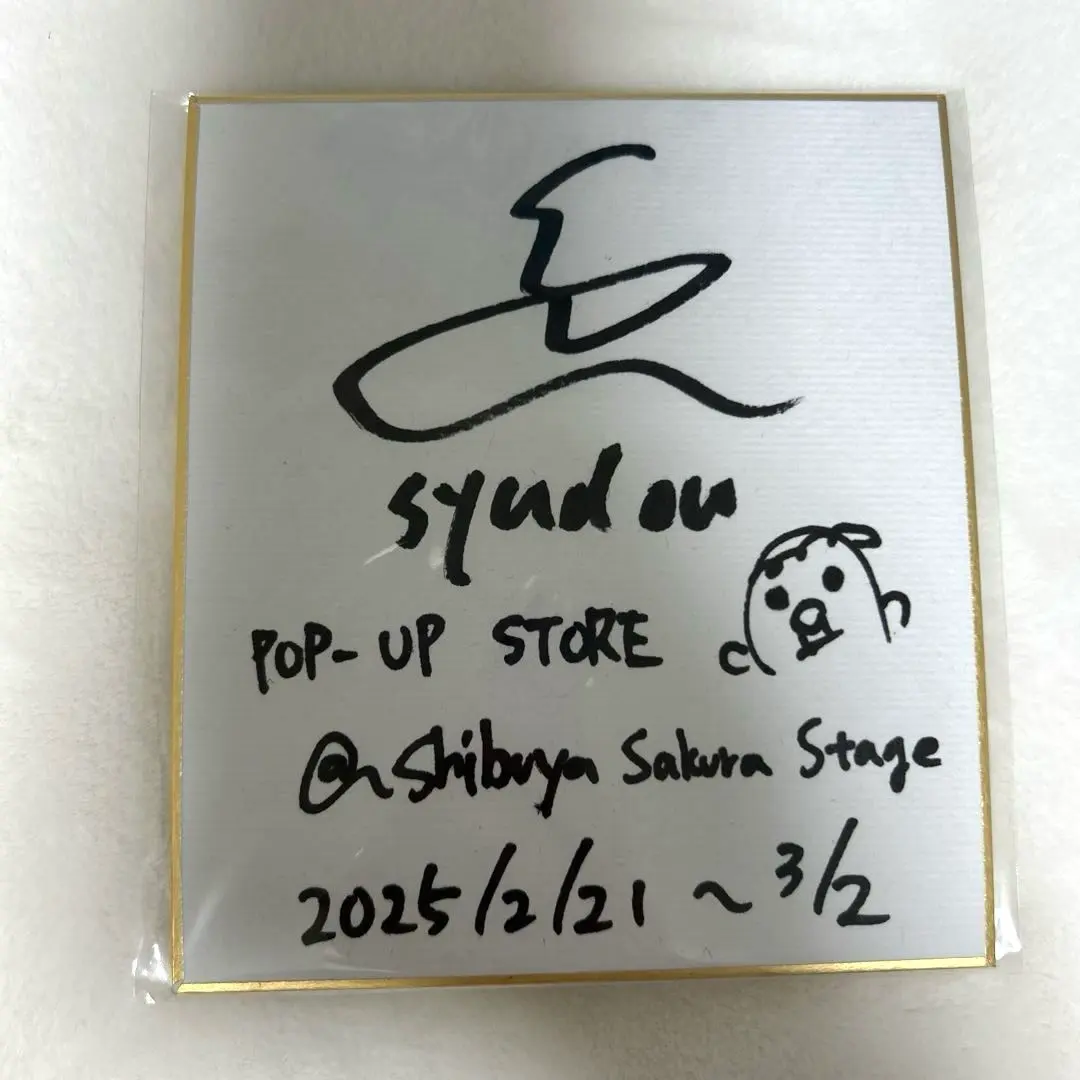 syudou
POP-UP STORE
@Shibuya Sakura Stage
2025/2/21 ~ 3/2